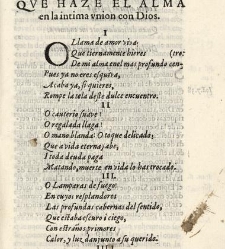 QVE HAZE EL ALMA
en la intima vnion con Dios.
I
O Llama de amor viua
Que tiernamente hieres (tro:
De mi alma en el mas profundo cen-
Pues ya no eres esquiua,
Acaba ya, si quieres,
Rompe la tela deste dulce encuentro.
II
O cauterio suaue!
O regalada llaga!
O mano blanda! O toque delicado:
Que a vida eterna sabe,
I toda deuda paga
Matando, muerte en vida lo has trocado.
III.
O Lamparas de fuego
En cuyos resplandores
Las profundas cabernas del sentido,
Que estaba escuro i ciego,
Con estraños primores
Calor, y luz dan junto a su querido.